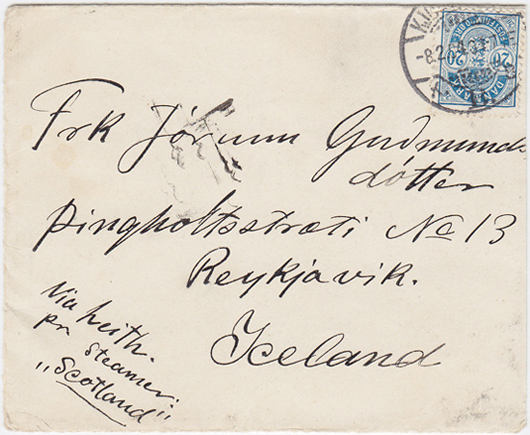 Frk Jórunn Gudmunds
dótter
Þingholtsstræti No 13
Reykjavik.
Iceland
Via Leith.
pr steamer:
„Scotland"
DANMARK
20
20